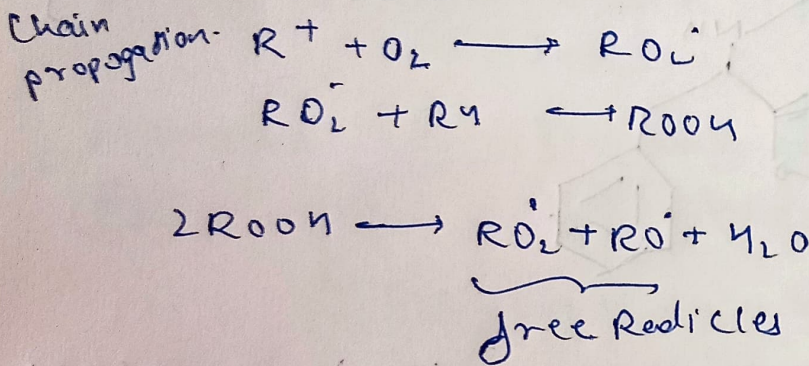 Chain
propogation. R⁺ + O₂ ⟶ RO₂˙
RO₂⁻ + RH ⟶ ROOH
2ROOH ⟶ RO₂˙ + RO˙ + H₂O
free Radicles